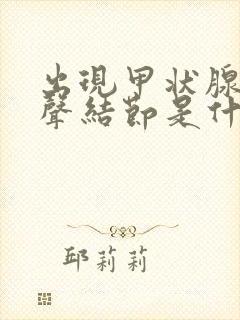 出現甲状腺
聲結節是什
邱莉莉